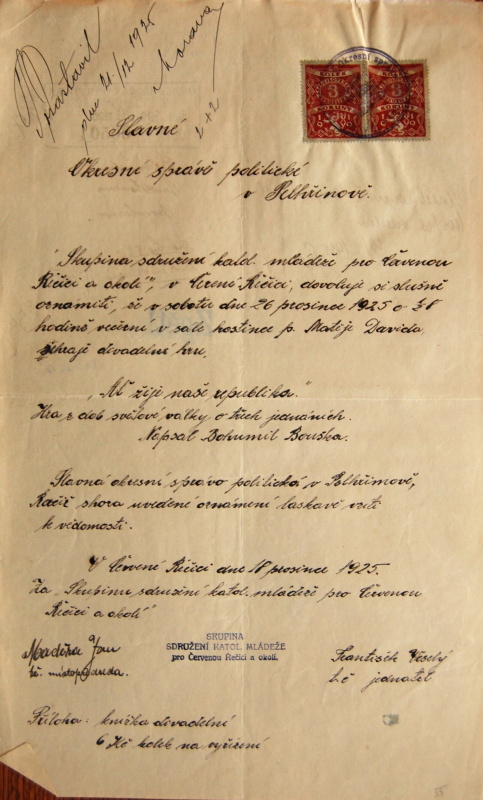 dne 21/12 1925
Morava
Slavné
Okresní správě politické
v Pelhřimově.
okresní spr
KOLEK KOLEK
3 3
KORUNY KORUNY
"Skupina sdružení katol. mládeže pro Červenou
Řečici a okolí", v Červ. Řečici, dovoluje si slušně
oznámiti, že v sobotu dne 26 prosince 1925 o
hodině večerní v sále hostince p. Matěje Davida
sehraje divadelní hru,
"Ať žije naše republika."
Hra z dob světové války o třech jednáních.
Napsal Bohumil Bouška.
Slavná okresní správo politická v Pelhřimově,
Račiž shora uvedené oznámení laskavě vzíti
k vědomosti.
V Červené Řečici dne 18 prosince 1925.
Za "Skupinu sdružení katol. mládeže pro Červenou
Řečici a okolí"
SKUPINA
SDRUŽENÍ KATOL. MLÁDEŽE
pro Červenou Řečici a okolí.
Jan
František Veselý
t.č. jednatel
Příloha: knížka divadelní
6 Kč kolek na vyřízení